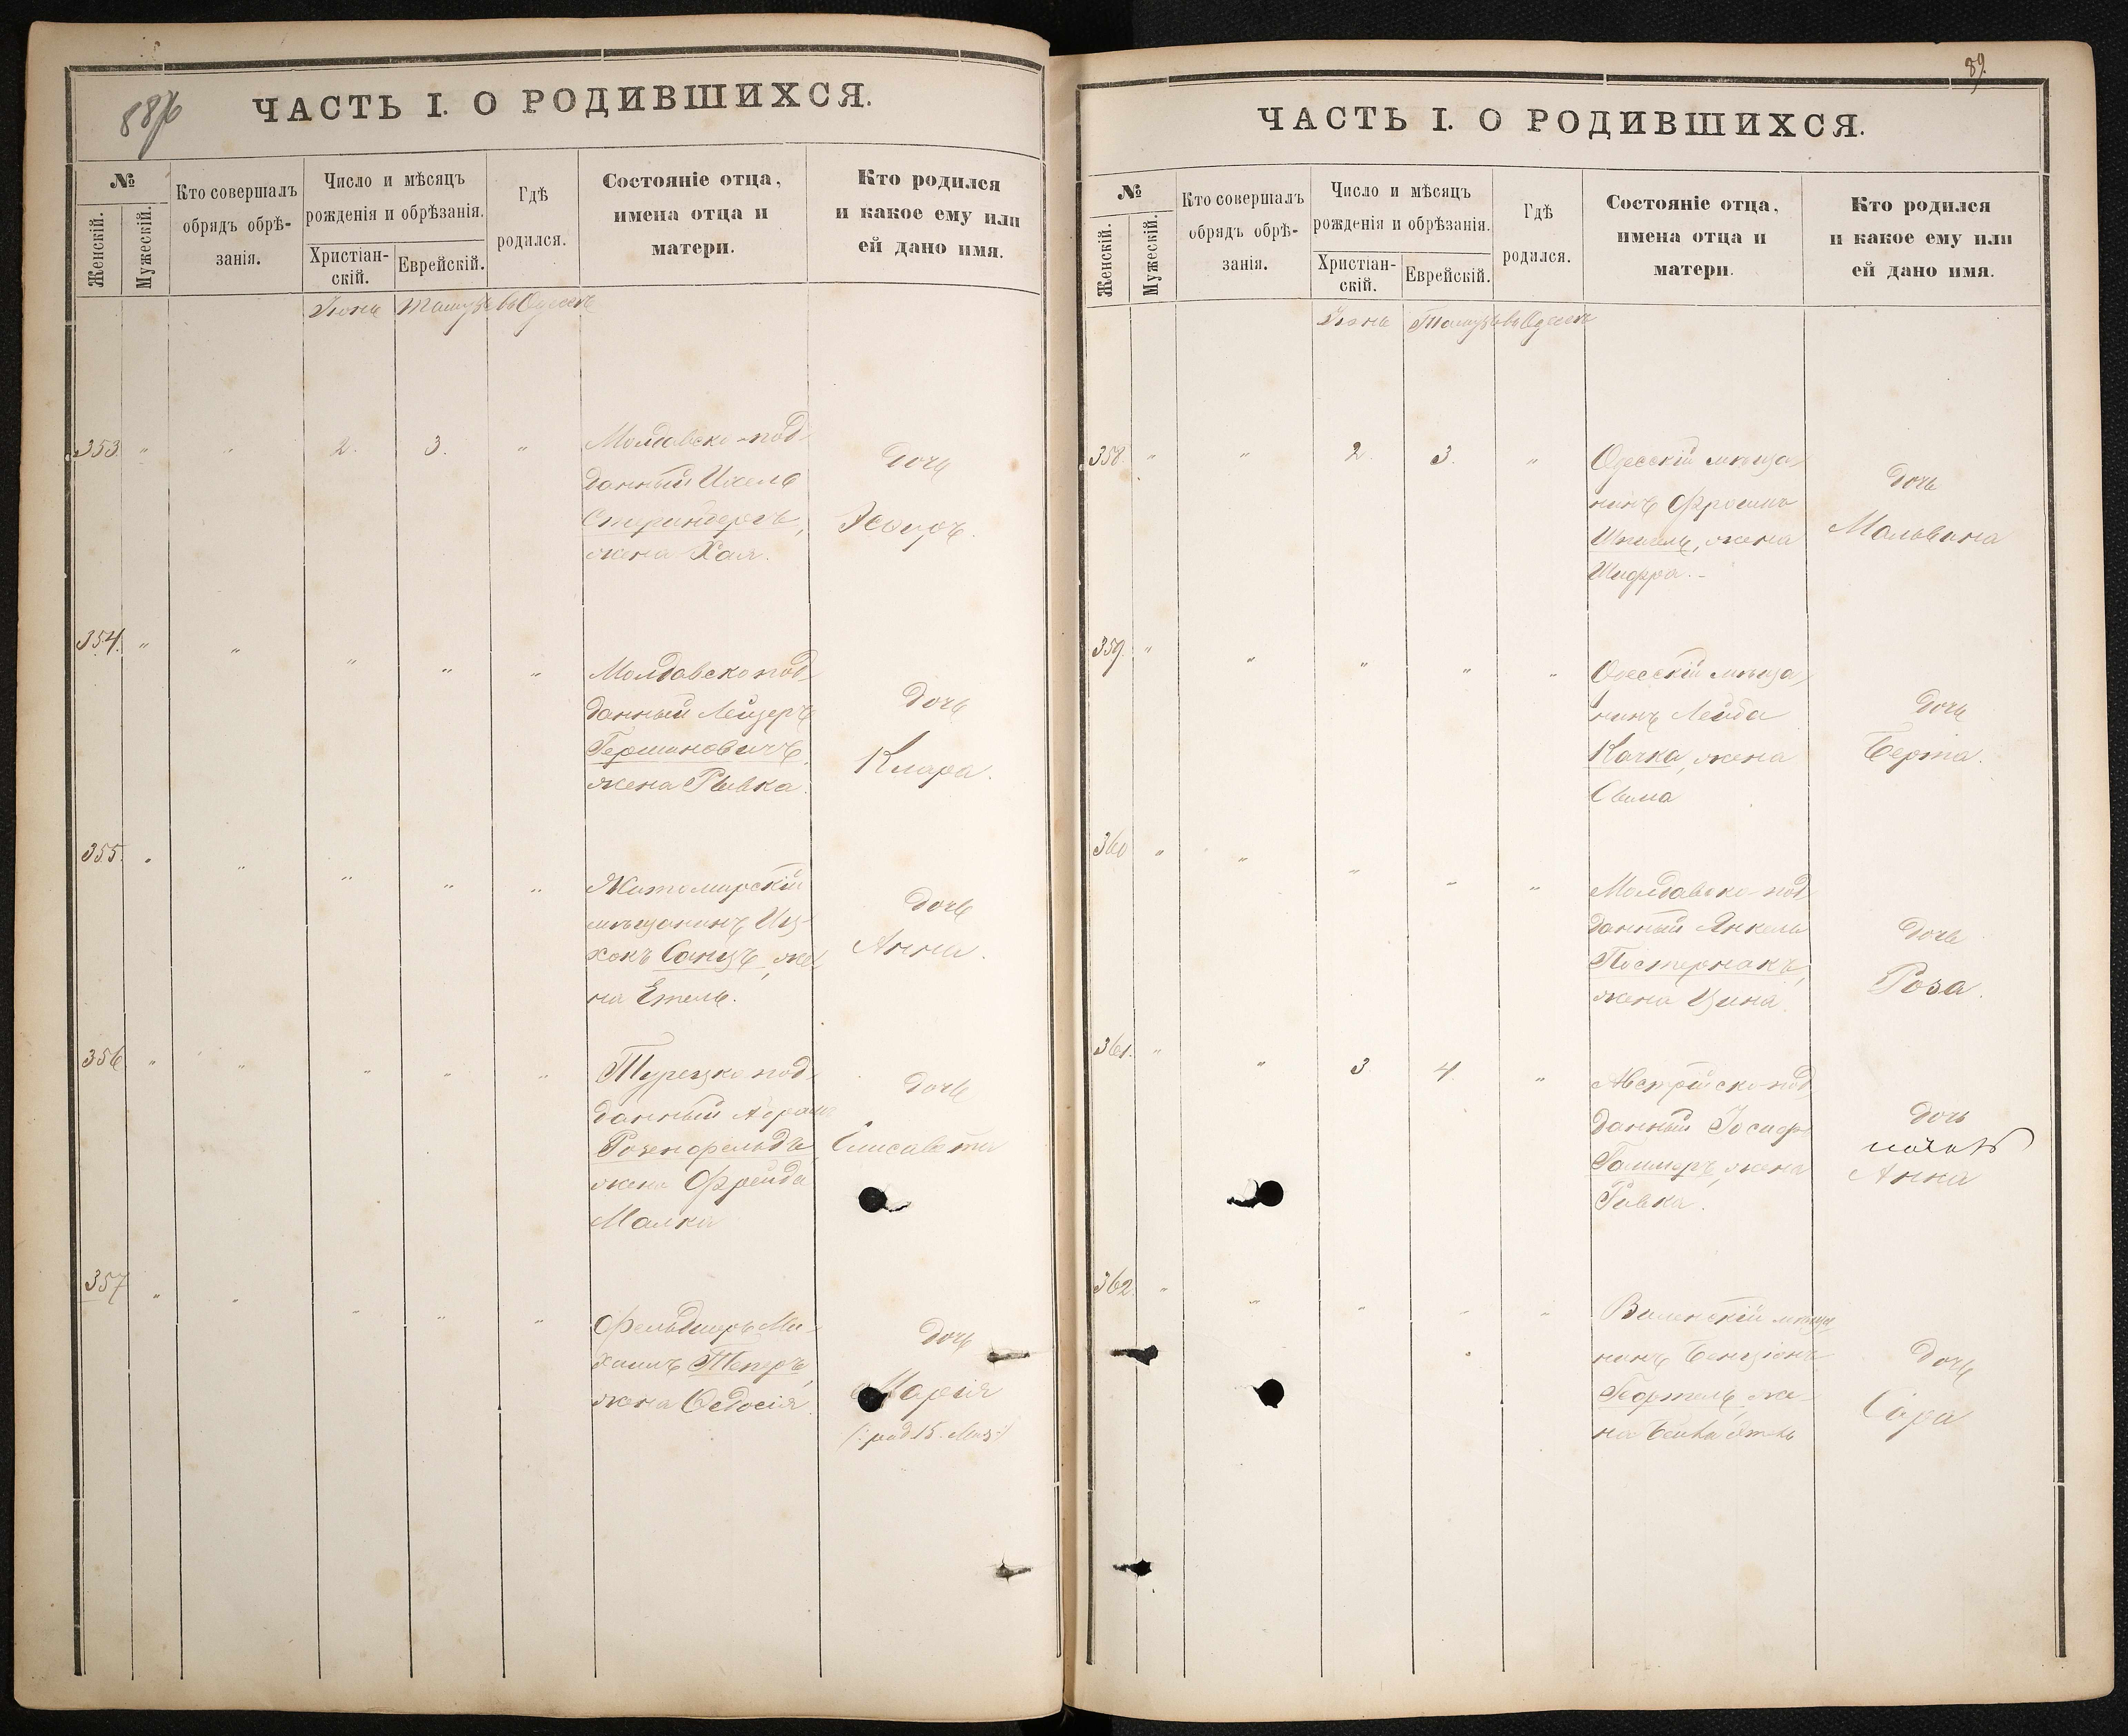 88 об
ЧАСТЬ I. О РОДИВШИХСЯ.
№
Женскій.
Мужескій.
Кто совершалъ
обрядъ обрѣ-
занія.
Число и мѣсяцъ
рожденія и обрѣзанія.
Христіан-
скій.
Еврейскій.
Гдѣ
родился.
Состояніе отца,
имена отца и
матери.
Кто родился
и какое ему или
ей дано имя.
Іюнь Тамузъ въ Одессѣ
353. " " 2. 3. "
Молдавско-под-
данный
жена Хая.
дочь
354. " " " " "
Молдавско под-
данный Лейзеръ
Германовичъ
жена Рывка.
дочь
Клара.
355. " " " " "
Житомирскій
мѣщанинъ Иц-
хокъ Санисъ, же-
на Етель.
дочь
Анна.
356 " " " " "
Турецко под-
данный Абрамъ
Розенфельдъ
жена Фрейда
Малка
дочь
Елисавета
357 " " " " "
Фельдшеръ Ми-
хаилъ Теперъ,
жена Федосія.
дочь
Марія
(: род 15. Мая :)
89.
ЧАСТЬ I. О РОДИВШИХСЯ.
№
Женскій.
Мужескій.
Кто совершалъ
обрядъ обрѣ-
занія.
Число и мѣсяцъ
рожденія и обрѣзанія.
Христіан-
скій.
Еврейскій.
Гдѣ
родился.
Состояніе отца,
имена отца и
матери.
Кто родился
и какое ему или
ей дано имя.
Іюнь Тамузъ въ Одессѣ
358. " " 2. 3. "
Одесскій мѣща-
нинъ Фроимъ
жена
Шифра.-
дочь
Мальвина
359. " " " " "
Одесскій мѣща-
нинъ Лейба
Качка, жена
Сима
дочь
Берта.
360 " " " " "
Молдавско-под-
данный Янкель
Постернакъ,
жена Цина.
дочь
Роза.
361. " " 3 4. "
Австрійско-под-
данный Іосифъ
жена
Ривка.
дочь
Анна
362. " " " " "
Виленскій мѣща-
нинъ Бенціонъ
же-
на
дочь
Сара